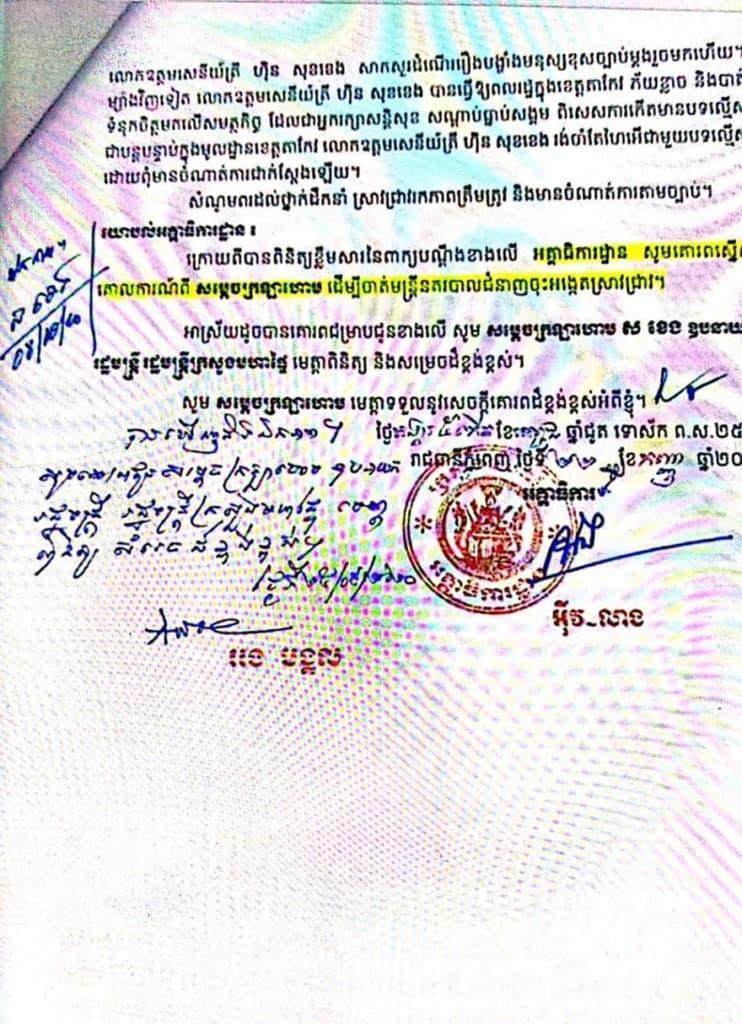 លោកឧត្តមសេនីយ៍ត្រី ហ៊ិន សុខខេង សាកសួរដំណើររឿងបង្ហាំងមនុស្សខុសច្បាប់ម្ដងរួចមកហើយ។
ម្យ៉ាងវិញទៀត លោកឧត្តមសេនីយ៍ត្រី ហ៊ិន សុខខេង បានធ្វើឱ្យពលរដ្ឋក្នុងខេត្តតាកែវ ភ័យខ្លាច និងបាត់
ទំនុកចិត្តមកលើសមត្ថកិច្ច ដែលជាអ្នករក្សាសន្តិសុខ សណ្ដាប់ធ្នាប់សង្គម ពិសេសការកើតមានបទល្មើស
ជាបន្តបន្ទាប់ក្នុងមូលដ្ឋានខេត្តតាកែវ លោកឧត្តមសេនីយ៍ត្រី ហ៊ិន សុខខេង រង់ចាំតែហៃអើជាមួយបទល្មើស
ដោយពុំមានចំណាត់ការជាក់ស្ដែងឡើយ។
សំណូមពរដល់ថ្នាក់ដឹកនាំ ស្រាវជ្រាវរកភាពត្រឹមត្រូវ និងមានចំណាត់ការតាមច្បាប់។
យោបល់អគ្គាធិការដ្ឋាន ៖
ក្រោយពីបានពិនិត្យខ្លឹមសារនៃពាក្យបណ្ដឹងខាងលើ អគ្គាធិការដ្ឋាន សូមគោរពស្នើ
គោលការណ៍ពី សម្ដេចក្រឡាហោម ដើម្បីចាត់មន្ត្រីនគរបាលជំនាញចុះអង្កេតស្រាវជ្រាវ។
អាស្រ័យដូចបានគោរពជម្រាបជូនខាងលើ សូម សម្ដេចក្រឡាហោម ស ខេង ឧបនាយ
រដ្ឋមន្ត្រី រដ្ឋមន្ត្រីក្រសួងមហាផ្ទៃ មេត្តាពិនិត្យ និងសម្រេចដ៏ខ្ពង់ខ្ពស់។
សូម សម្ដេចក្រឡាហោម មេត្តាទទួលនូវសេចក្ដីគោរពដ៏ខ្ពង់ខ្ពស់អំពីខ្ញុំ។
ថ្ងៃ ខែ ឆ្នាំជូត ទោស័ក ព.ស.២៥
រាជធានីភ្នំពេញ ថ្ងៃទី ២២ ខែ កញ្ញា ឆ្នាំ២០
អគ្គាធិការ
រដ្ឋមន្ត្រី រដ្ឋមន្ត្រីក្រសួងមហាផ្ទៃ មេត្តា
អគ្គាធិការដ្ឋាន
អ៊ីវ-លាង
អេង បង្គល